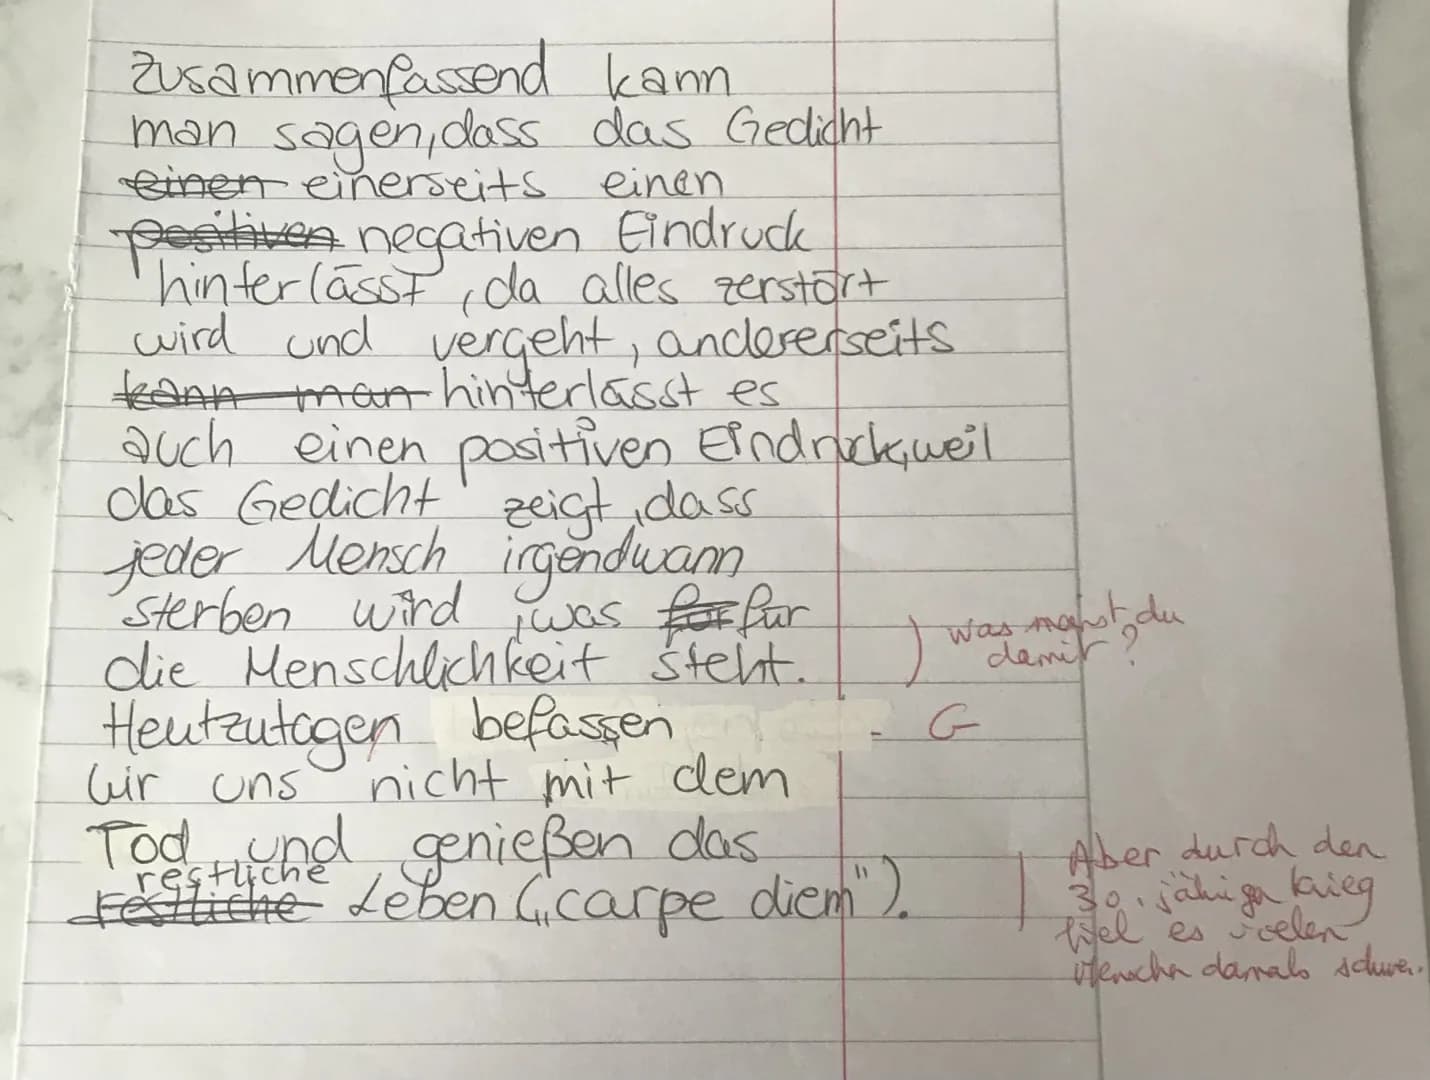 Zusammenfassend kann
man sagen, dass das Gedicht
einen einerseits einen
positiven negativen Eindruck
hinterlässt, da alles zerstört
wird und vergeht, andererseits
kann man hinterlässt es
auch einen positiven Eindruck, weil
das Gedicht zeigt, dass
jeder Mensch irgendwann
sterben wird, was für für
die Menschlichkeit steht.
was meinst du
damit?
Heutzutagen befassen
G
wir uns nicht mit dem
Tod und genießen das
restliche
restliche Leben („carpe diem").
Aber durch den
30. jährigen Krieg
fiel es vielen
Menschen damals schwer.